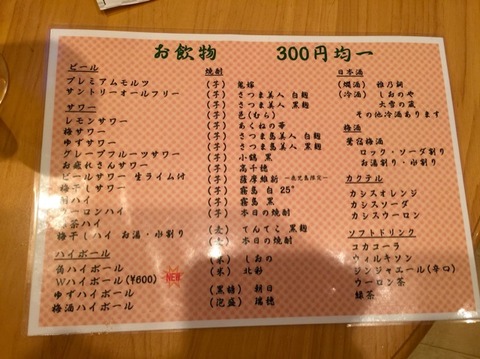 お飲物　300円均一
ビール
プレミアムモルツ
サントリーオールフリー
サワー
レモンサワー
梅サワー
ゆずサワー
グレープフルーツサワー
お疲れさんサワー
ビールサワー 生ライム付
梅干しサワー
ウーロンハイ
緑茶ハイ
梅干しハイ お湯・水割り
ハイボール
角ハイボール
Wハイボール(¥600) NEW
ゆずハイボール
梅酒ハイボール
焼酎
(芋) 鬼嫁
(芋) さつま美人 白麹
(芋) さつま美人 黒麹
(芋) 邑(むら)
(芋) あくねの華
(芋) さつま島美人 白麹
(芋) さつま島美人 黒麹
(芋) 小鶴 黒
(芋) 高千穂
(芋) 薩摩維新 －鹿児島限定－
(芋) 霧島 白 25°
(芋) 霧島 黒
(芋) 本日の焼酎
(麦) てんてこ 黒麹
(麦) 本日の焼酎
(米) しおの
(米)
(黒糖) 朝日
(泡盛) 瑞穂
日本酒
(燗酒)
(冷酒) しおのや
大雪の蔵
その他冷酒あります
梅酒
鶯宿梅酒
ロック・ソーダ割り
お湯割り・水割り
カクテル
カシスオレンジ
カシスソーダ
カシスウーロン
ソフトドリンク
コカコーラ
ウィルキソン
ジンジャエール(辛口)
ウーロン茶
緑茶